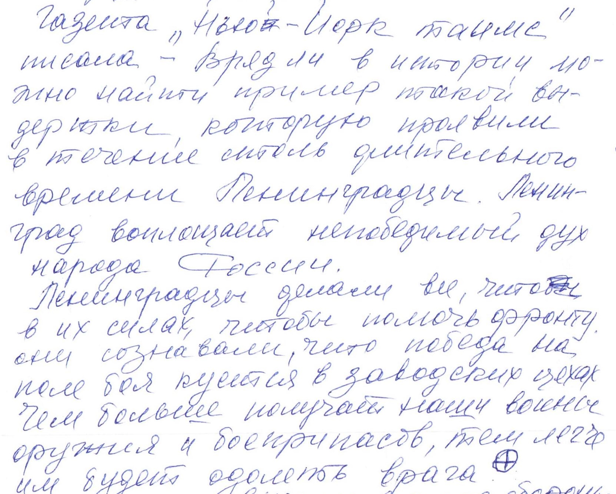 Газета „Нью-Йорк таймс"
писала – Вряд ли в истории мо-
жно найти пример такой вы-
держки, которую проявили
в течение столь длительного
времени Ленинградцы. Ленин-
град воплощает непобедимый дух
народа России.
Ленинградцы делали все, что
в их силах, чтобы помочь фронту.
они сознавали, что победа на
поле боя куется в заводских цехах
Чем больше получат наши воины
оружия и боеприпасов, тем легче
им будет одолеть врага.